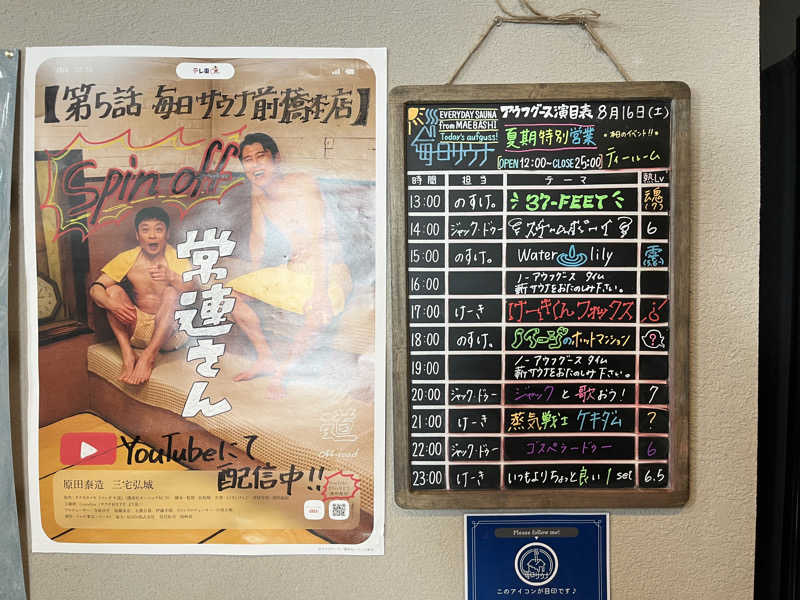 テレ東
【第5話 毎日サウナ前橋本店】
Spin off
常連さん
道
off-road
YouTubeにて
配信中!!
原田泰造 三宅弘城
EVERYDAY SAUNA
from MAEBASHI
Today's aufguss!
毎日サウナ
アウフグース演目表 8月16日(土)
夏期特別営業
本日のイベント!!
OPEN 12:00~CLOSE 25:00
ティールーム
時間 担当 テーマ 熱Lv
13:00 のすけ。 37-FEET 魂
14:00 ジャック・ドゥー スチームボーイ 6
15:00 のすけ。 Water lily
16:00 ノーアウフグース タイム
薪サウナをおたのしみ下さい。
17:00 けーき けーきくんフォックス
18:00 のすけ。 のホットマンション ?
19:00 ノーアウフグース タイム
薪サウナをおたのしみ下さい。
20:00 ジャック・ドゥー ジャックと歌おう! 7
21:00 けーき 蒸気戦士 ケキダム ?
22:00 ジャック・ドゥー ゴスペラードゥー 6
23:00 けーき いつもよりちょっと良い 1 set 6.5
Please follow me!
毎日サウナ
このアイコンが目印です♪